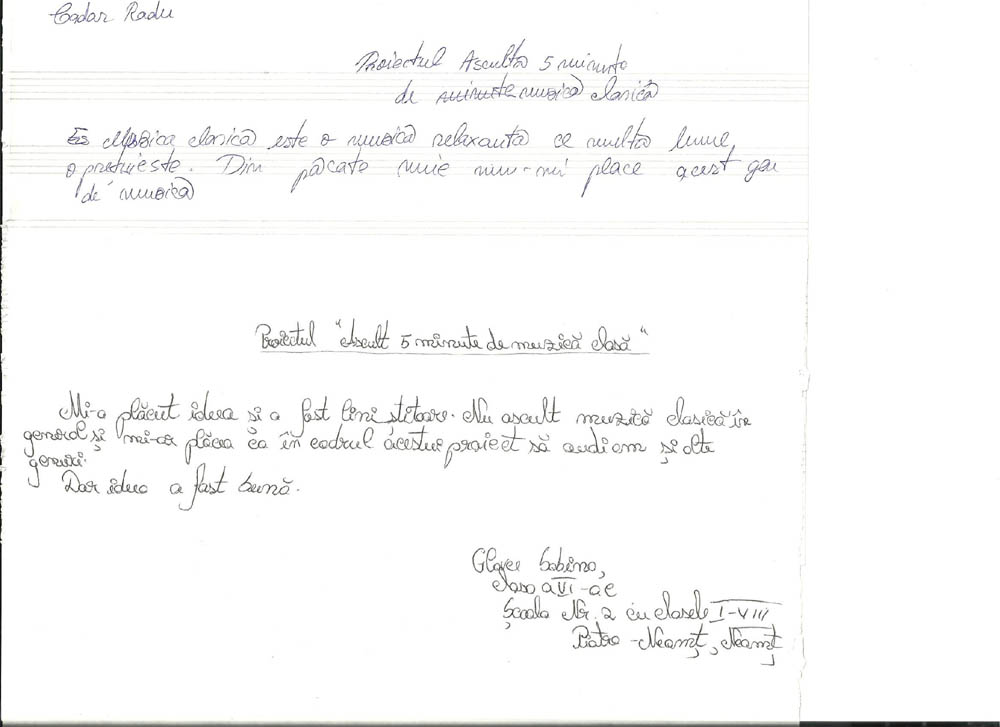 Cadar Radu
Proiectul Asculta 5 minute
de minute muzică clasică
Es Muzica clasică este o muzică relaxanta ce multă lume
o prețuiește. Din păcate mie nu-mi place acest gen
de muzică
Proiectul "Ascult 5 minute de muzică clasă"
Mi-a plăcut ideea și a fost liniștitoare. Nu ascult muzică clasică în
general și mi-ar plăcea ca în cadrul acestui proiect să audiem și alte
genuri.
Dar ideea a fost bună.
Sabina,
clasa a VI-a C
Școala Nr. 2 cu clasele I-VIII
Piatra-Neamț, Neamț